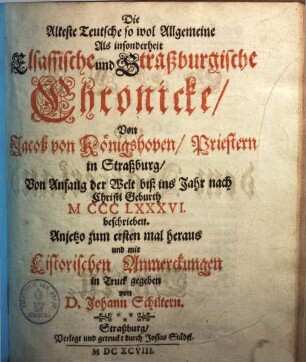 Die
Alteste Teutsche so wol Allgemeine
Als insonderheit
Elsassische und Straßburgische
Chronicke/
Von
Jacob von Königshoven/ Priestern
in Straßburg/
Von Anfang der Welt biß ins Jahr nach
Christi Geburth
M CCC LXXXVI.
beschrieben.
Anjetzo zum ersten mal heraus
und mit
Historischen Anmerckungen
in Truck gegeben
von
D. Johann Schiltern.
Straßburg/
Verlegt und getruckt durch Josias Städel.
M DC XCVIII.